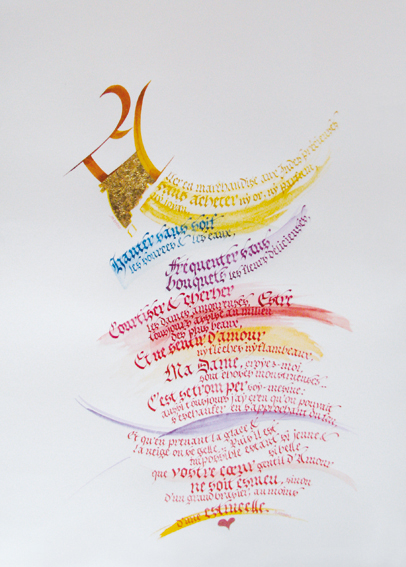 Aller en marchandise aux Indes précieuses
sans acheter ny or, ny parfum
ny joyaux
Hanter sans soif
les sources & les eaux,
Fréquenter sans
bouquets les fleurs délicieuses,
Courtiser & chercher
les dames amoureuses, Estre
toujours assise au milieu
des plus beaux,
Et ne sentir d'amour
ny flèches ny flambeaux,
Ma Dame, croyez-moi,
sont choses monstrueuses.
C'est se tromper soy-mesme:
aussi toujours j'ay creu qu'on pouvoit
s'eschauffer en s'approchant du feu,
Et qu'en prenant la glace &
la neige on se gelle. Puis il est
impossible estant si jeune &
si belle
que vostre cœur gentil d'Amour
ne soit esmeu, sinon
d'un grand brasier, au moins
d'une estincelle.